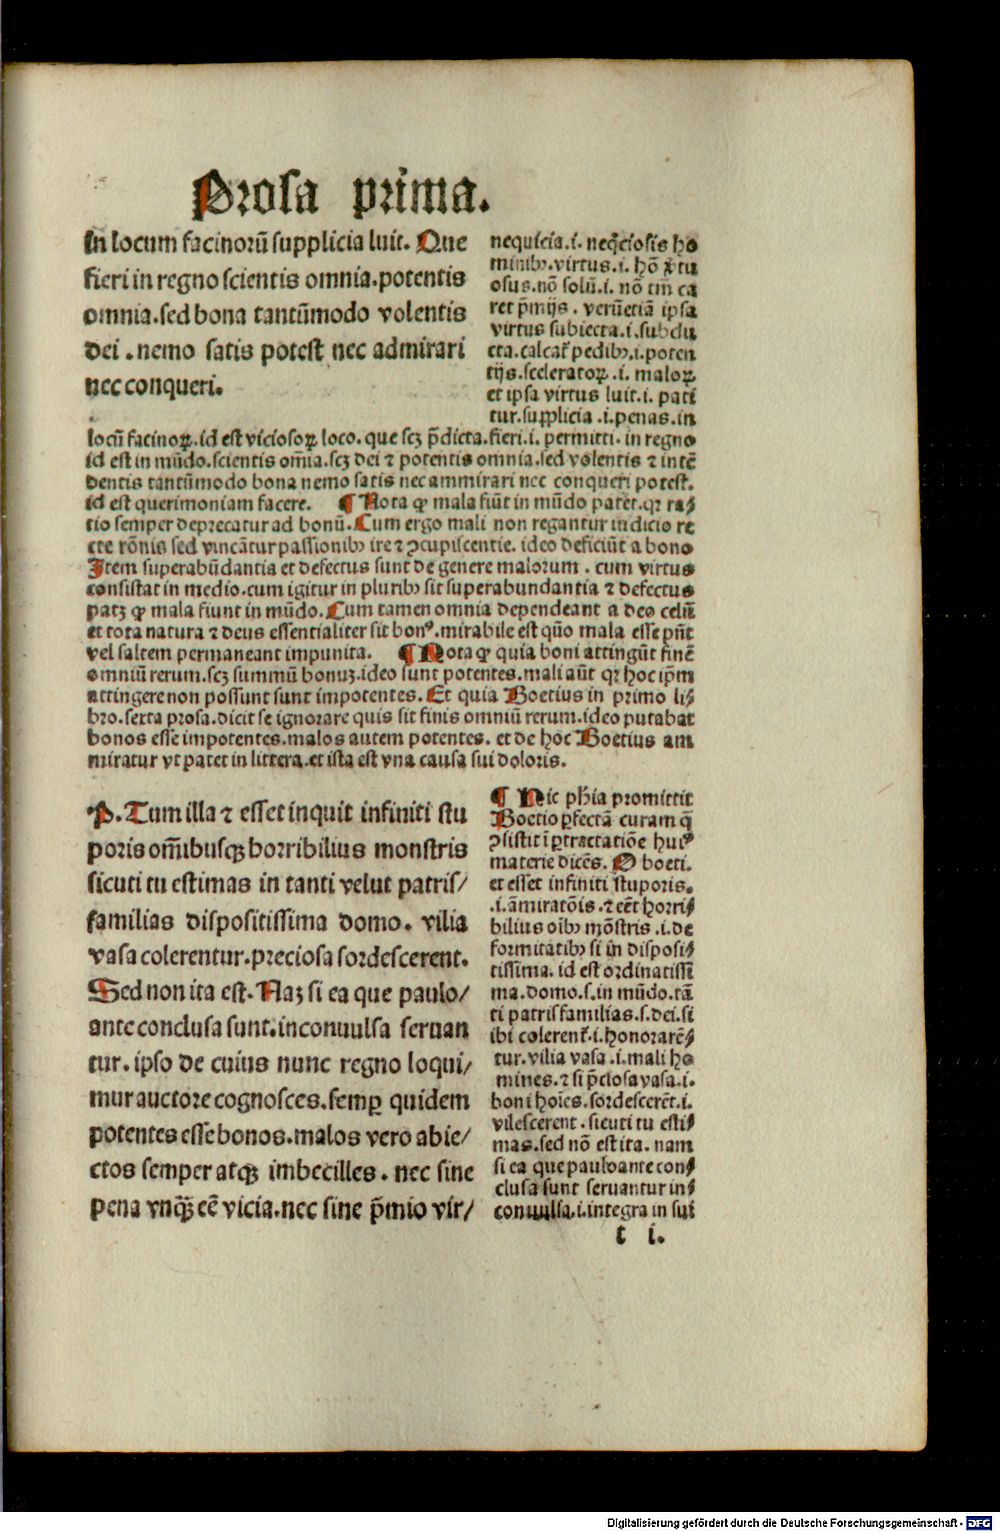 Prosa prima.
In locum facinorū supplicia luit. Que
fieri in regno scientis omnia.potentis
omnia.sed bona tantūmodo volentis
dei .nemo satis potest nec admirari
nec conqueri.
nequicia.i. neq̄ciosis ho
minibꝰ.virtus.i. hō ꝟtu
osus.nō solū.i. nō tm̄ ca
ret p̄mijs. verūetiā ipsa
virtus subiecta.i.subdu
cta.calcat᷑ pedibꝫ.i.poten
tijs.sceleratoꝝ.i. maloꝝ
et ipsa virtus luit.i. pati
tur.supplicia.i.penas.in
locū facinoꝝ.id est viciosoꝝ loco. que scꝫ p̄dicta.fieri.i. permitti. in regno
id est in mūdo.scientis om̄ia.scꝫ dei ⁊ potentis omnia.sed volentis ⁊ intē
dentis tantūmodo bona nemo satis nec ammirari nec conqueri potest.
id est querimoniam facere. ¶ Nota ꝙ mala fiūt in mūdo patet.qꝛ ra⸗
tio semper deprecatur ad bonū.Cum ergo mali non regantur iudicio re
cte rōnis sed vincātur passionibꝫ ire ⁊ ꝯcupiscentie. ideo deficiūt a bono
Item superabūdantia et defectus sunt de genere malorum . cum virtus
consistat in medio.cum igitur in pluribꝫ sit superabundantia ⁊ defectus
patꝫ ꝙ mala fiunt in mūdo.Cum tamen omnia dependeant a deo celū
et tota natura ⁊ deus essentialiter sit bonꝰ.mirabile est quō mala esse pn̄t
vel saltem permaneant impunita. ¶ Nota ꝙ quia boni attingūt finē
omniū rerum.scꝫ summū bonuꝫ.ideo sunt potentes.mali aūt qꝛ hoc ip̄m
attingere non possunt sunt impotentes. Et quia Boetius in primo li⸗
bro.sexta prosa.dicit se ignorare quis sit finis omniū rerum.ideo putabat
bonos esse impotentes.malos autem potentes. et de hoc Boetius am
miratur vt patet in littera.et ista est vna causa sui doloris.
P.Tum illa ⁊ esset inquit infiniti stu
poris om̄ibusqꝫ horribilius monstris
sicuti tu estimas in tanti velut patris/
familias dispositissima domo. vilia
vasa colerentur.preciosa sordescerent.
Sed non ita est.Naꝫ si ea que paulo/
ante conclusa sunt.inconuulsa seruan
tur. ipso de cuius nunc regno loqui/
mur auctore cognosces.semꝑ quidem
potentes esse bonos.malos vero abie/
ctos semper atqꝫ imbecilles. nec sine
pena vnqꝫ̄ eē vicia.nec sine p̄mio vir/
¶ Hic ph̄ia promittit
Boetio ꝑfectā curam q̄
ꝯsistit ī ꝑtractatiōe huiꝰ
materie dicēs. O boeti.
et esset infiniti stuporis.
.i.āmiratōis.⁊ eēt horri⸗
bilius oībꝫ mōstris.i.de
formitatibꝫ si in disposi⸗
tissima. id est ordinatissī
ma.domo.s.in mūdo.tā
ti patrisfamilias.s.dei.si
ibi colerent᷑.i.honorarē⸗
tur.vilia vasa.i.mali ho
mines.⁊ si p̄ciosa vasa.i.
boni hoīes.sordescerēt.i.
vilescerent. sicuti tu esti⸗
mas.sed nō est ita. nam
si ea que pauloante con⸗
clusa sunt seruantur in⸗
conuulsa.i.integra in sui
t i.
Digitalisierung gefördert durch die Deutsche Forschungsgemeinschaft - DFG